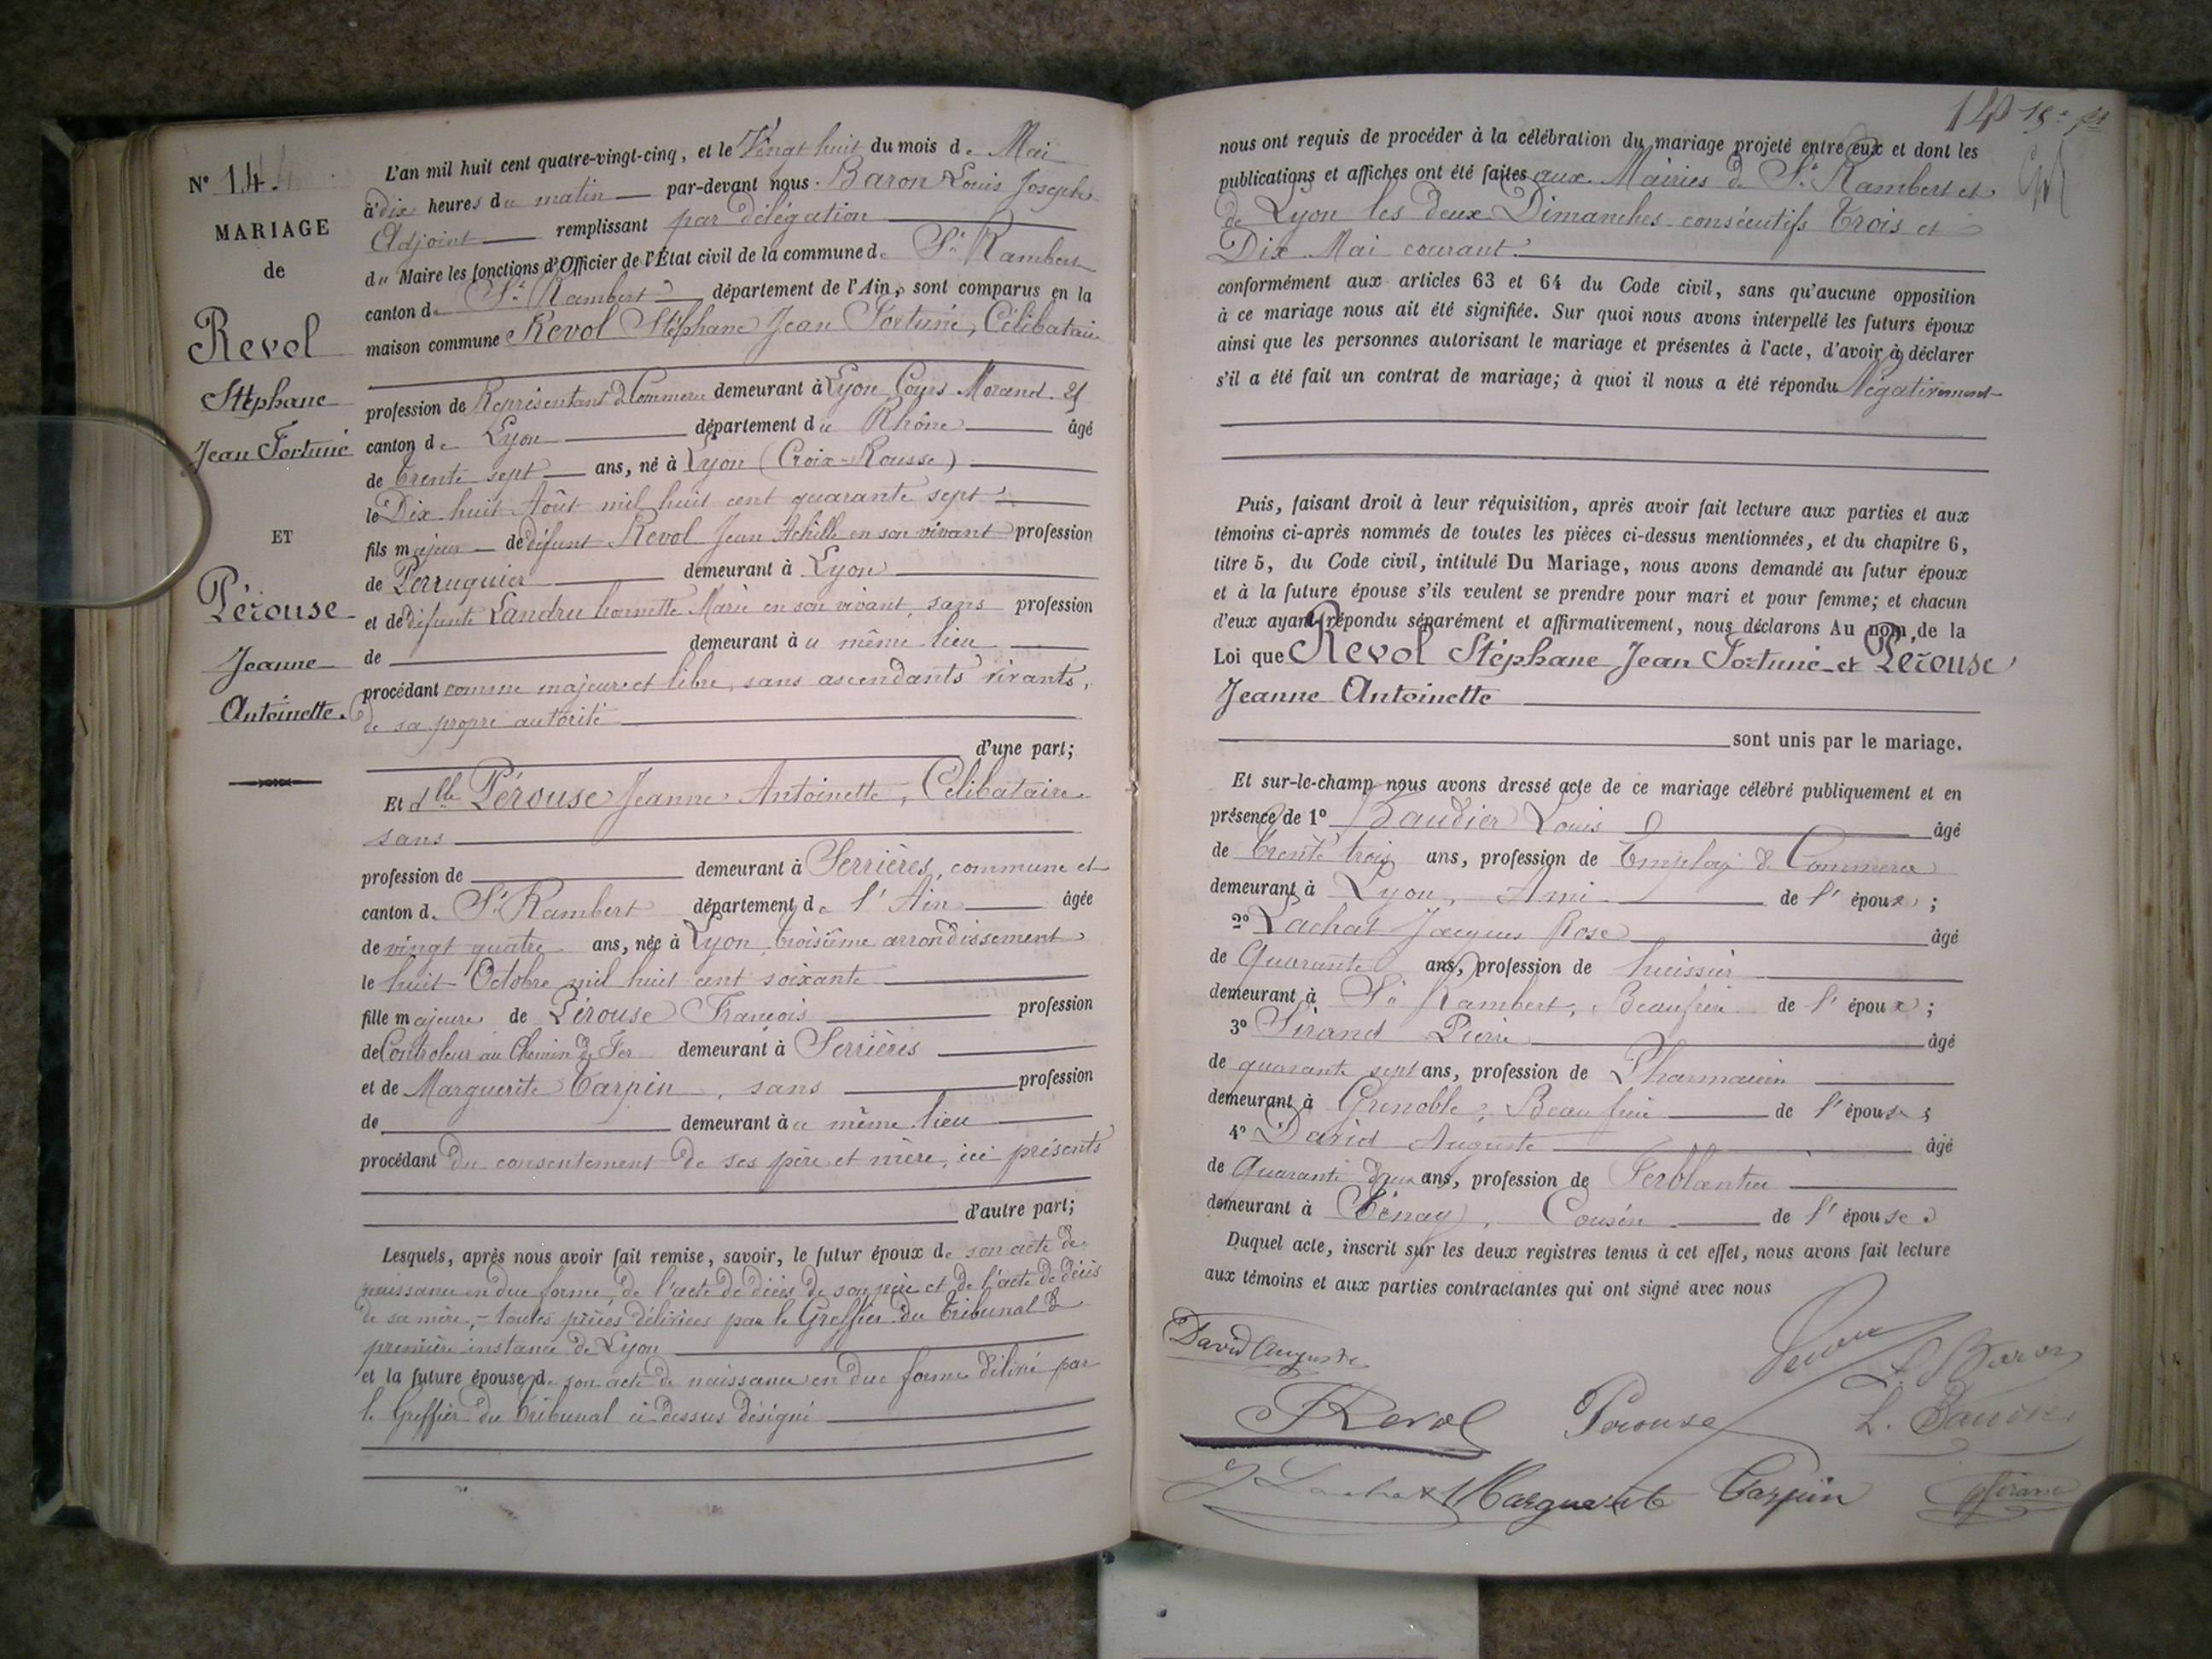 N° 14.
MARIAGE
de
Revol
Stéphane
Jean Fortuné
ET
Pérouse
Jeanne
Antoinette.
L'an mil huit cent quatre-vingt-cinq, et le Vingt huit du mois de Mai
à dix heures du matin par-devant nous Baron Louis Joseph
Adjoint remplissant par délégation
du Maire les fonctions d'Officier de l'État civil de la commune de St Rambert
canton de St Rambert département de l'Ain, sont comparus en la
maison commune Revol Stéphane Jean Fortuné, Célibataire
profession de Représentant de Commerce demeurant à Lyon Cours Morand 21
canton de Lyon département du Rhône âgé
de trente sept ans, né à Lyon (Croix-Rousse)
le Dix huit Août mil huit cent quarante sept
fils majeur de défunt Revol Jean Achille en son vivant profession
de Perruquier demeurant à Lyon
et de défunte Landru Marie en son vivant, sans profession
de demeurant au même lieu
procédant comme majeur et libre, sans ascendants vivants,
de sa propre autorité
d'une part;
Et dlle Pérouse Jeanne Antoinette, Célibataire
sans
profession de demeurant à Serrières, commune et
canton de St Rambert département de l'Ain âgée
de vingt quatre ans, née à Lyon, troisième arrondissement
le huit Octobre mil huit cent soixante
fille majeure de Pérouse François profession
de Controleur au Chemin de Fer demeurant à Serrières
et de Marguerite Tarpin, sans profession
de demeurant au même lieu
procédant du consentement de ses père et mère, ici présents
d'autre part;
Lesquels, après nous avoir fait remise, savoir, le futur époux de son acte de
naissance en due forme, de l'acte de décès de son père et de l'acte de décès
de sa mère, - toutes pièces délivrées par le Greffier du Tribunal de
première instance de Lyon
et la future épouse, de son acte de naissance en due forme délivré par
le Greffier du Tribunal ci-dessus désigné
nous ont requis de procéder à la célébration du mariage projeté entre eux et dont les
publications et affiches ont été faites aux Mairies de St Rambert et
de Lyon les deux Dimanches consécutifs Trois et
Dix Mai courant.
conformément aux articles 63 et 64 du Code civil, sans qu'aucune opposition
à ce mariage nous ait été signifiée. Sur quoi nous avons interpellé les futurs époux
ainsi que les personnes autorisant le mariage et présentes à l'acte, d'avoir à déclarer
s'il a été fait un contrat de mariage; à quoi il nous a été répondu Négativement
Puis, faisant droit à leur réquisition, après avoir fait lecture aux parties et aux
témoins ci-après nommés de toutes les pièces ci-dessus mentionnées, et du chapitre 6,
titre 5, du Code civil, intitulé Du Mariage, nous avons demandé au futur époux
et à la future épouse s'ils veulent se prendre pour mari et pour femme; et chacun
d'eux ayant répondu séparément et affirmativement, nous déclarons Au nom de la
Loi que Revol Stéphane Jean Fortuné et Pérouse
Jeanne Antoinette
sont unis par le mariage.
Et sur-le-champ nous avons dressé acte de ce mariage célébré publiquement et en
présence de 1° Baudier Louis âgé
de trente trois ans, profession de Employé de Commerce
demeurant à Lyon, Ami de l'époux;
2° Lachat Jacques Rose âgé
de Quarante ans, profession de huissier
demeurant à St Rambert, Beaufrère de l'époux;
3° Sirand Pierre âgé
de quarante sept ans, profession de Pharmacien
demeurant à Grenoble, Beau frère de l'épouse;
4° David Auguste âgé
de Quarante deux ans, profession de Ferblantier
demeurant à Tenay, Cousin de l'épouse.
Duquel acte, inscrit sur les deux registres tenus à cet effet, nous avons fait lecture
aux témoins et aux parties contractantes qui ont signé avec nous
David Auguste
L. Baron
Revol Pérouse L. Baudier
J Lachat Marguerite Tarpin PSirand